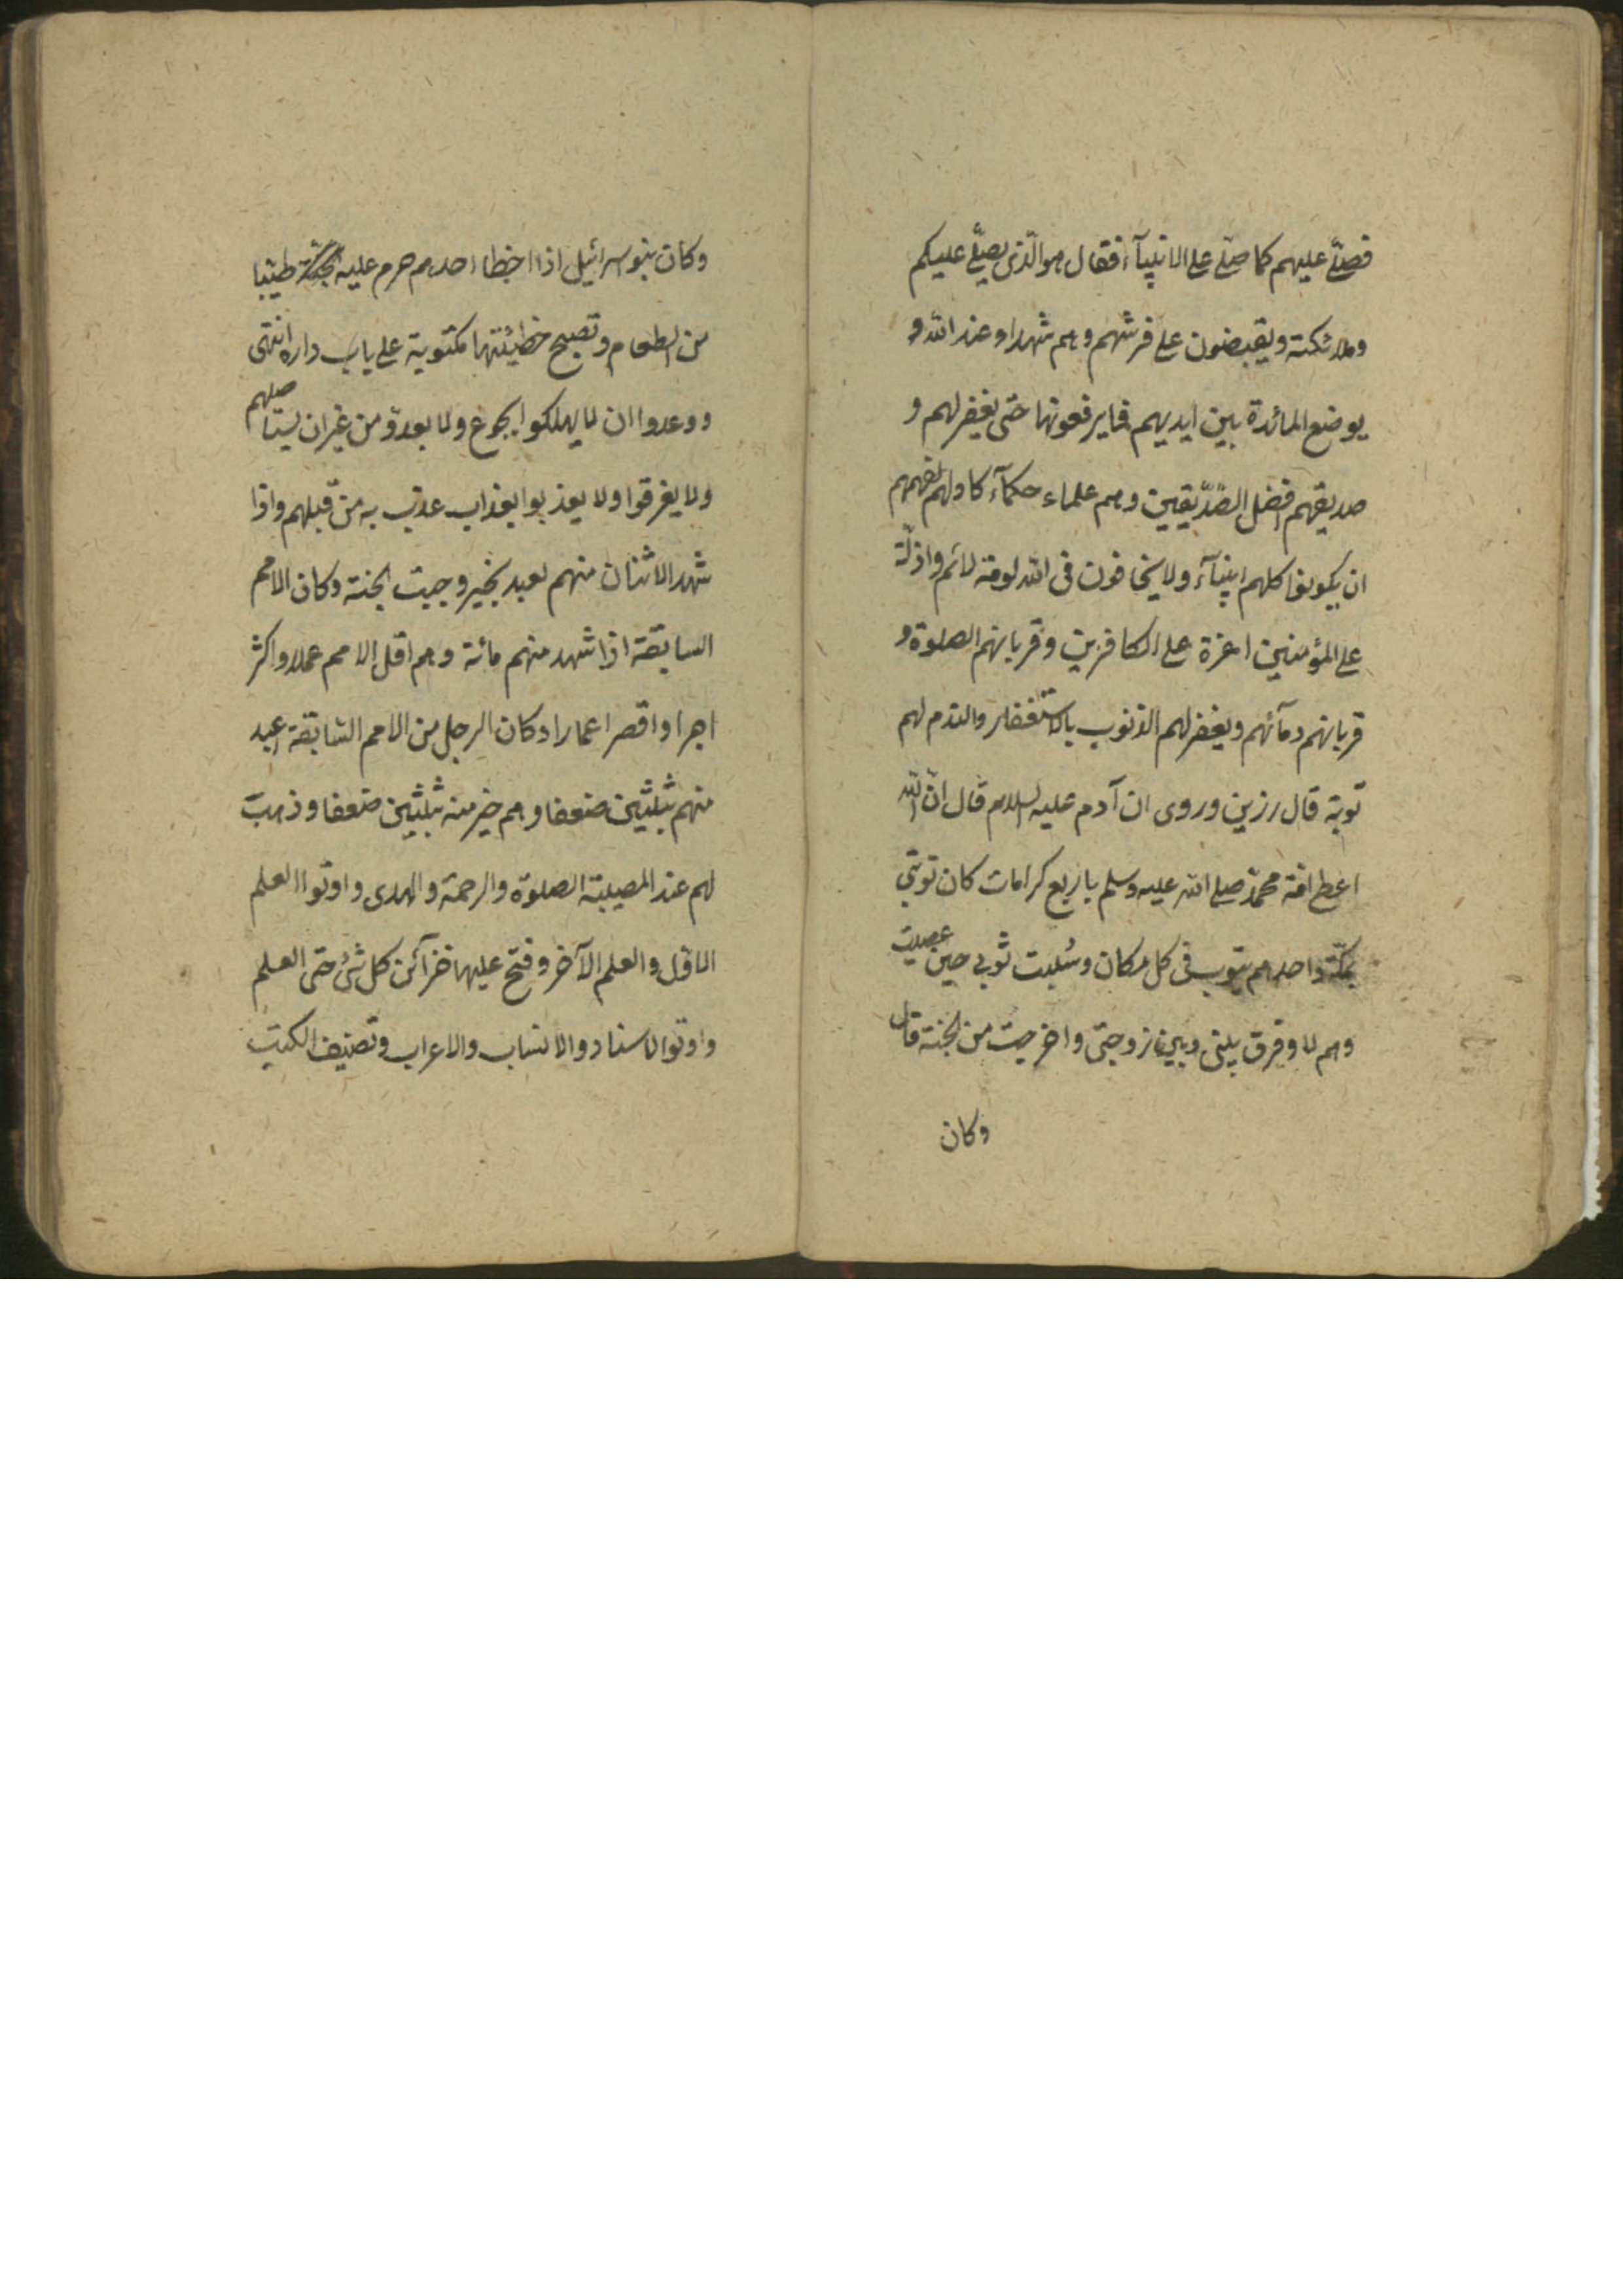 فصلّى عليهم كما صلّى على الانبيآء فقال هو الّذى يصلّى عليكم
وملائكته ويقبضون على فرشهم وهم شهداء عند اللّه و
يوضع المائدة بين ايديهم فما يرفعونها حتى يغفر لهم و
صديقهم افضل الصّدّيقين وهم علماء حكمآء كادوا لفقههم
ان يكونوا كلهم انبيآء ولا يخافون فى اللّه لومة لائم واذلّة
على المؤمنين اعزة على الكافرين وقربانهم الصلوة و
قربانهم دمآئهم ويغفر لهم الذنوب بالاستغفار والندم لهم
توبة قال رزين وروى ان آدم عليه السلام قال انّ اللّه
اعطى امّة محمّد صلى اللّه عليه وسلم باربع كرامات كان توبتى
بمكّة واحدهم يتوب فى كل مكان وسُلبت ثوبى حين عصيت
وهم لا وفرق بينى وبين زوجتى واخرجت من الجنة قال
وكان
وكان بنو اسرائيل اذا اخطا احدهم حرم عليه الجنّة طيّبا
من الطعام وتصبح خطيئتها مكتوبة على باب داره انتهى
ووعدوا ان لا يهلكوا بجوع ولا بعدوّ من غير ان يستاصلهم
ولا يغرقوا ولا يعذبوا بعذاب عذب به من قبلهم واذا
شهد الاثنان منهم لعبد بخير وجبت الجنة وكان الامم
السابقة اذا شهد منهم مائة وهم اقل الامم عملا واكثر
اجرا واقصر اعمارا وكان الرجل من الامم السّابقة اعبد
منهم بثلثين ضعفا وهم خير منه بثلثين ضعفا وذهبت
لهم عند المصيبة الصلوة والرحمة والهدى واوتوا العلم
الاوّل والعلم الآخر وفتح عليها خزآئن كل شئ حتى العلم
واوتوا الاسناد والانساب والاعراب وتصنيف الكتب